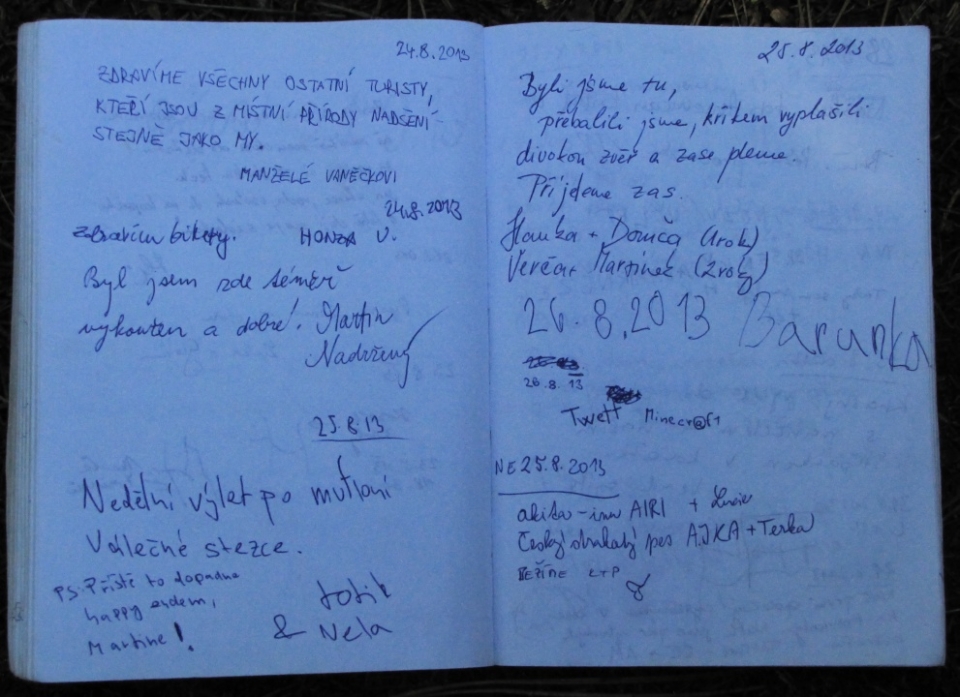 24.8.2013
ZDRAVÍME VŠECHNY OSTATNÍ TURISTY,
KTEŘÍ JSOU Z MÍSTNÍ PŘÍRODY NADŠENÍ
STEJNĚ JAKO MY.
MANŽELÉ VANĚČKOVI
24.8.2013
zdravím bikery. HONZA V.
Byl jsem zde téměř
vykouřen a dobré! Martin
Nadržený
25.8.13
Nedělní výlet po
Válečné stezce.
PS: Příště to dopadne
happy endem,
Martine!
totik
& Nela
25.8.2013
Byli jsme tu,
přebalili jsme, křikem vyplašili
divokou zvěř a zase jdeme.
Přijdeme zas.
Hanka + Domča (1rok)
Verča + Martínek (2roky)
26.8.2013 Barunka
26.8.13
Twett Minecr@ft
NE 25.8.2013
akita-inu AIRI + Lucie
Český strakatý pes AJKA + Terka
BEŽÍME LTP